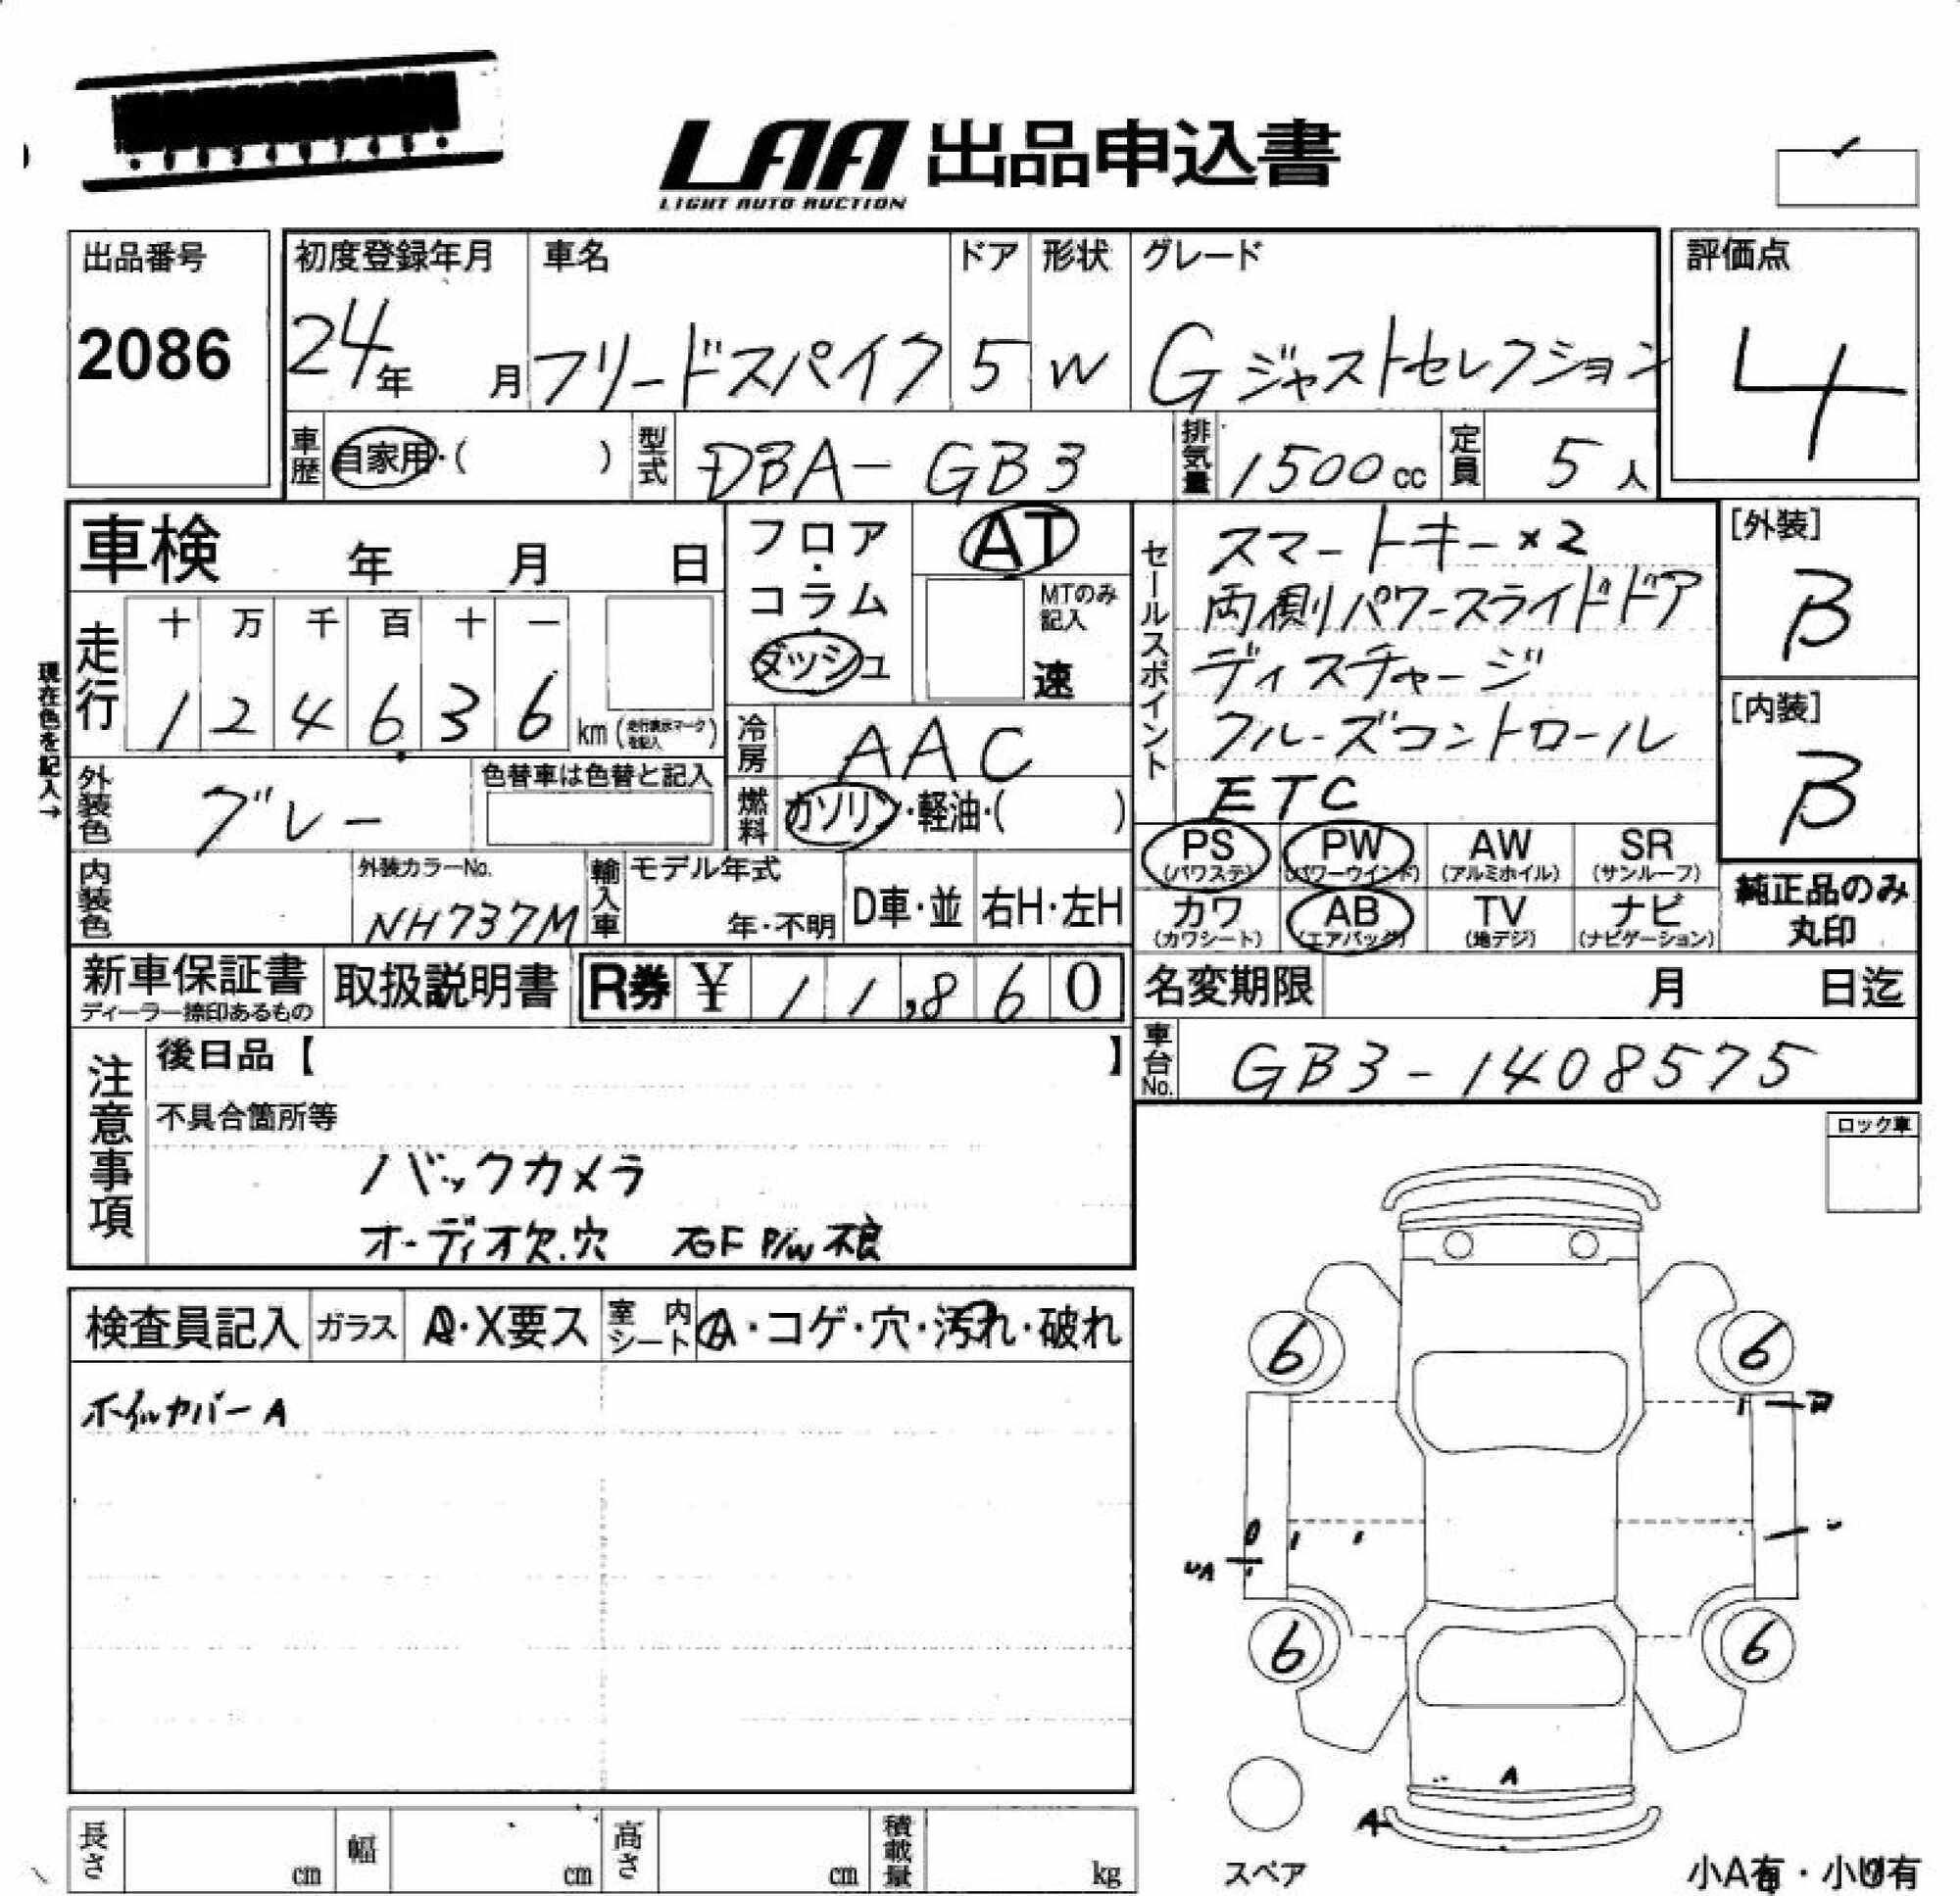 LAA 出品申込書
LIGHT AUTO AUCTION
出品番号
2086
初度登録年月
24年 月
車名
フリードスパイク
ドア
5
形状
W
グレード
Gジャストセレクション
評価点
4
車歴 自家用・( )
型式 DBA-GB3
排気量 1500cc
定員 5人
車検 年 月 日
フロア・コラム・ダッシュ
AT
MTのみ記入
速
セールスポイント
スマートキー×2
両側パワースライドドア
ディスチャージ
クルーズコントロール
ETC
[外装]
B
[内装]
B
現在色を記入→
走行
十 万 千 百 十 一
1 2 4 6 3 6 km(走行表示マークを記入)
冷房 AAC
燃料 ガソリン・軽油・( )
外装色 グレー
色替車は色替と記入
PS (パワステ)
PW (パワーウインド)
AW (アルミホイル)
SR (サンルーフ)
カワ (カワシート)
AB (エアバッグ)
TV (地デジ)
ナビ (ナビゲーション)
純正品のみ丸印
内装色
外装カラーNo.
NH737M
輸入車
モデル年式
年・不明
D車・並
右H・左H
新車保証書
ディーラー捺印あるもの
取扱説明書
R券 ¥ 11,860
名変期限 月 日迄
車台No. GB3-1408575
注意事項
後日品【 】
不具合箇所等
バックカメラ
オーディオ欠.穴 右F P/W 不良
ロック車
検査員記入
ガラス A・X要ス
室内シート A・コゲ・穴・汚れ・破れ
ホイルカバーA
6
6
6
6
A
A
スペア
小A有・小U有
長さ cm
幅 cm
高さ cm
積載量 kg